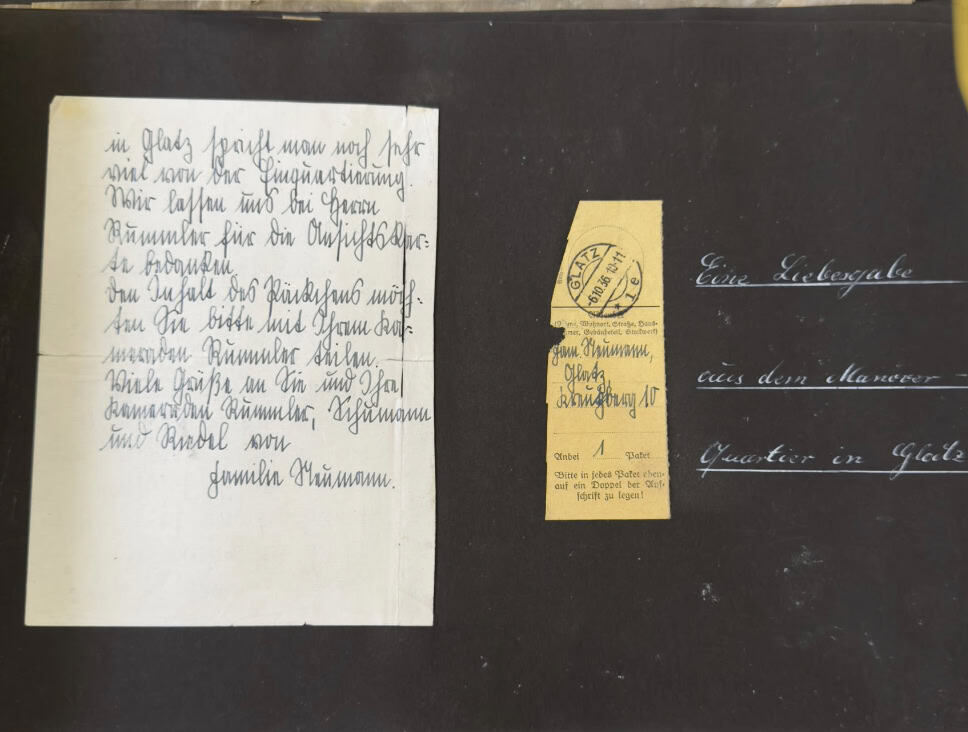 in Glatz spricht man noch sehr
viel von der Einquartierung.
Wir lassen uns bei Herrn
Rummler für die Ansichtskar=
te bedanken.
Den Inhalt des Päckchens möch=
ten Sie bitte mit Ihrem Ka=
meraden Rummler teilen.
Viele Grüße an Sie und Ihre
Kameraden Rummler, Schumann
und Riedel von
Familie Neumann.
GLATZ
-6.10.36.10-11
* 1 e
Wohnort, Straße, Haus-
Gebäudeteil, Stockwerk)
Fam. Neumann,
Glatz
Kreuzberg 10
Anbei 1 Paket
Bitte in jedes Paket oben-
auf ein Doppel der Auf-
schrift zu legen!
Eine Liebesgabe
aus dem Manöver-
Quartier in Glatz